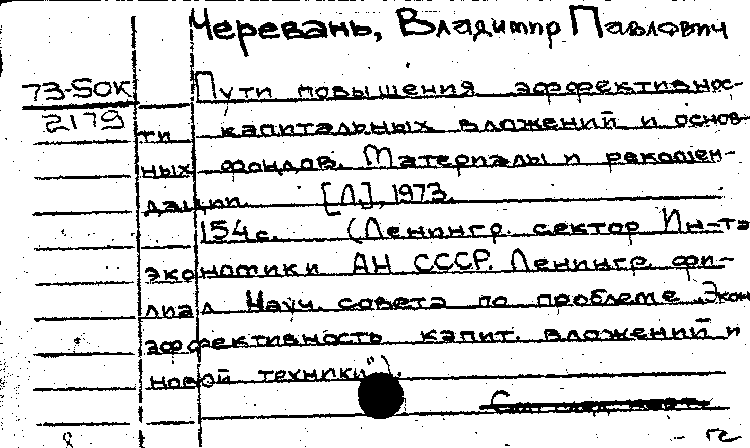 Черевань, Владимир Павлович
73-50К Пути повышения эффективнос-
2179 ти капитальных вложений и основ-
ных фондов. Материалы и рекомен-
дации. [Л.], 1973.
154 с. (Ленингр. сектор Ин-та
экономики АН СССР. Ленингр. фи-
лиал Науч. совета по проблеме „Экон.
эффективность капит. вложений и
новой техники").
См. след. карт.
8 гс